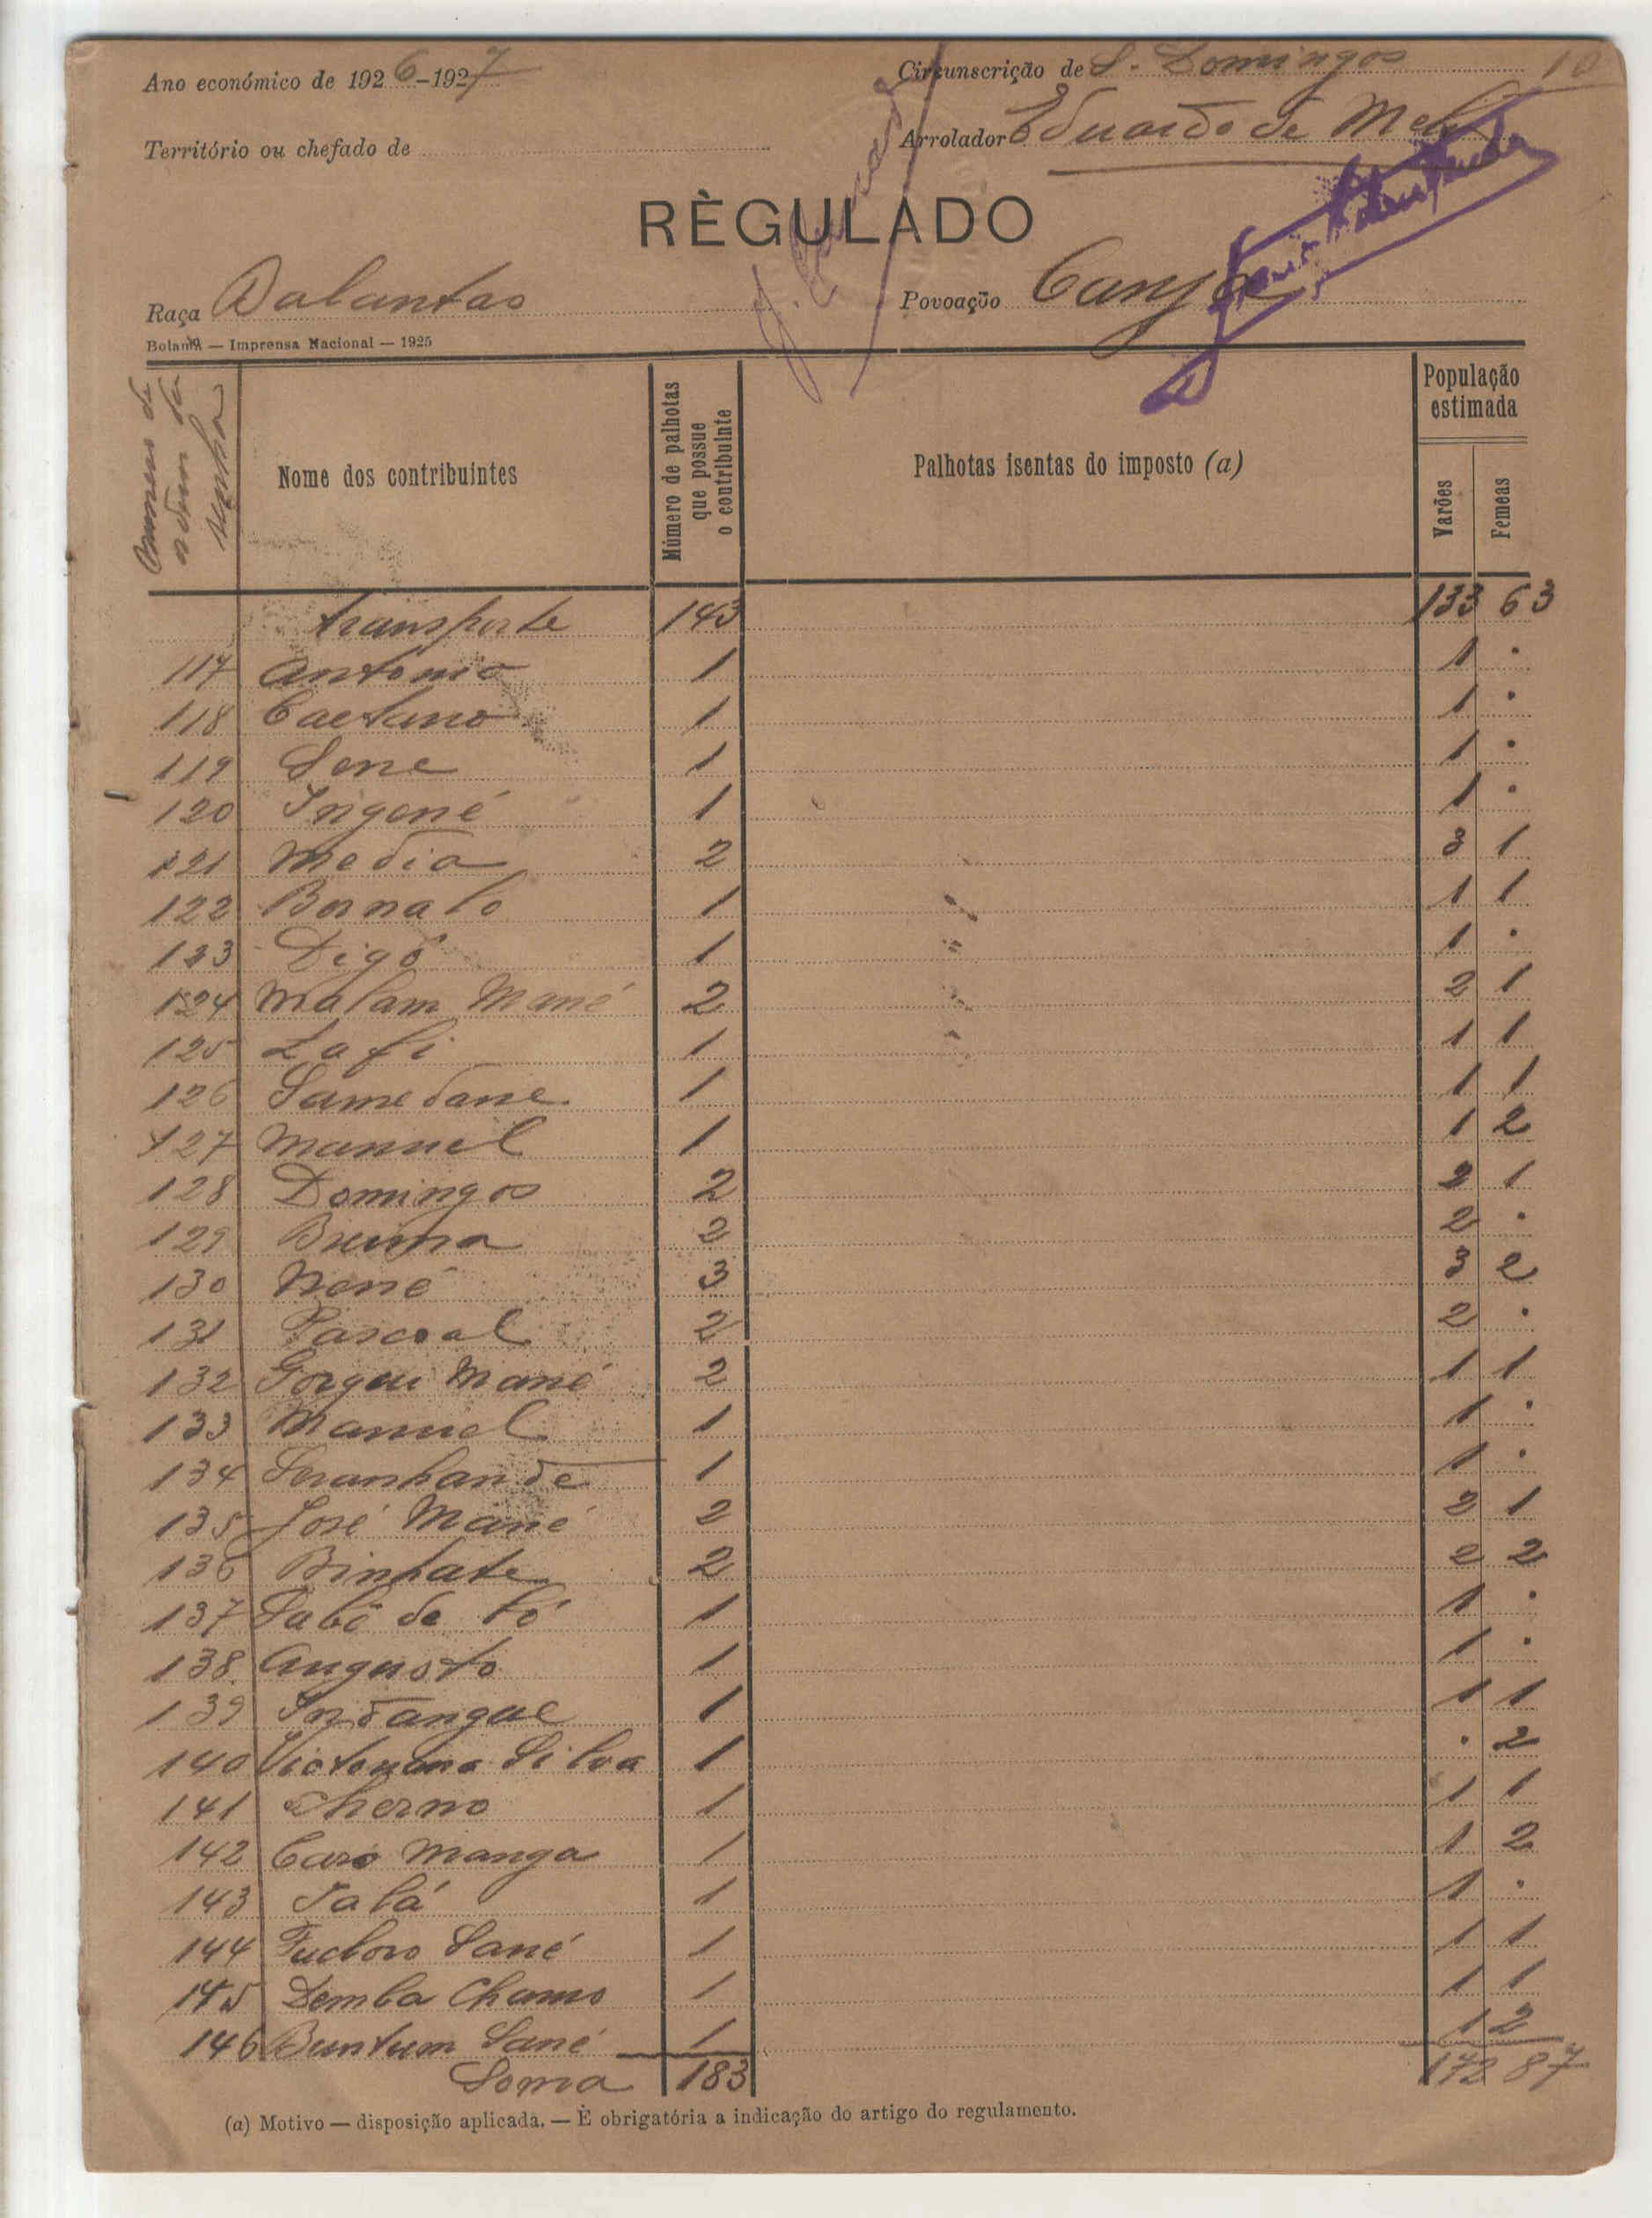 Ano económico de 1926-1927
Circunscrição de S. Domingos
10
Território ou chefado de
Arrolador Eduardo de Melo
RÈGULADO
Raça Balantas
Povoação
Bolama — Imprensa Nacional — 1925
Numero de
ordem da
Nome dos contribuintes
Número de palhotas
que possue
o contribuinte
Palhotas isentas do imposto (a)
População
estimada
Varões
Femeas
transporte 143 133 63
117 Antonio 1 1 .
118 Caetano 1 1 .
119 Sene 1 1 .
120 Ingoné 1 1 .
121 Media 2 3 1
122 Bornalo 1 1 1
123 Digô 1 1 .
124 Malam Mané 2 2 1
125 Lafi 1 1 1
126 Samedane 1 1 1
127 Manuel 1 1 2
128 Domingos 2 2 1
129 2 2 .
130 Nené 3 3 2
131 Pascoal 2 2 .
132 Mané 2 1 1
133 Manuel 1 1 .
134 1 1 .
135 José Mané 2 2 1
136 2 2 2
137 1 1 .
138 Augusto 1 1 .
139 Indangue 1 1 1
140 Silva 1 . 2
141 Cherno 1 1 1
142 Manga 1 1 2
143 1 1 .
144 Sané 1 1 1
145 Demba Chamo 1 1 1
146 Buntum Sané 1 1 2
Soma 183 172 87
(a) Motivo — disposição aplicada. — È obrigatória a indicação do artigo do regulamento.